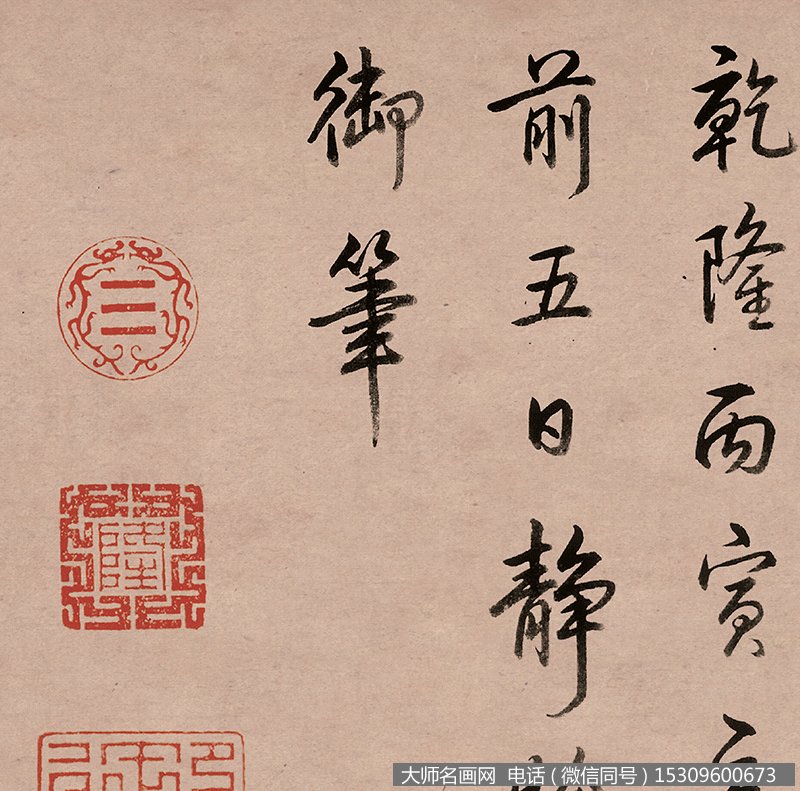 乾隆丙寅
前五日靜
御筆
乾隆
大师名画网 电话（微信同号）15309600673